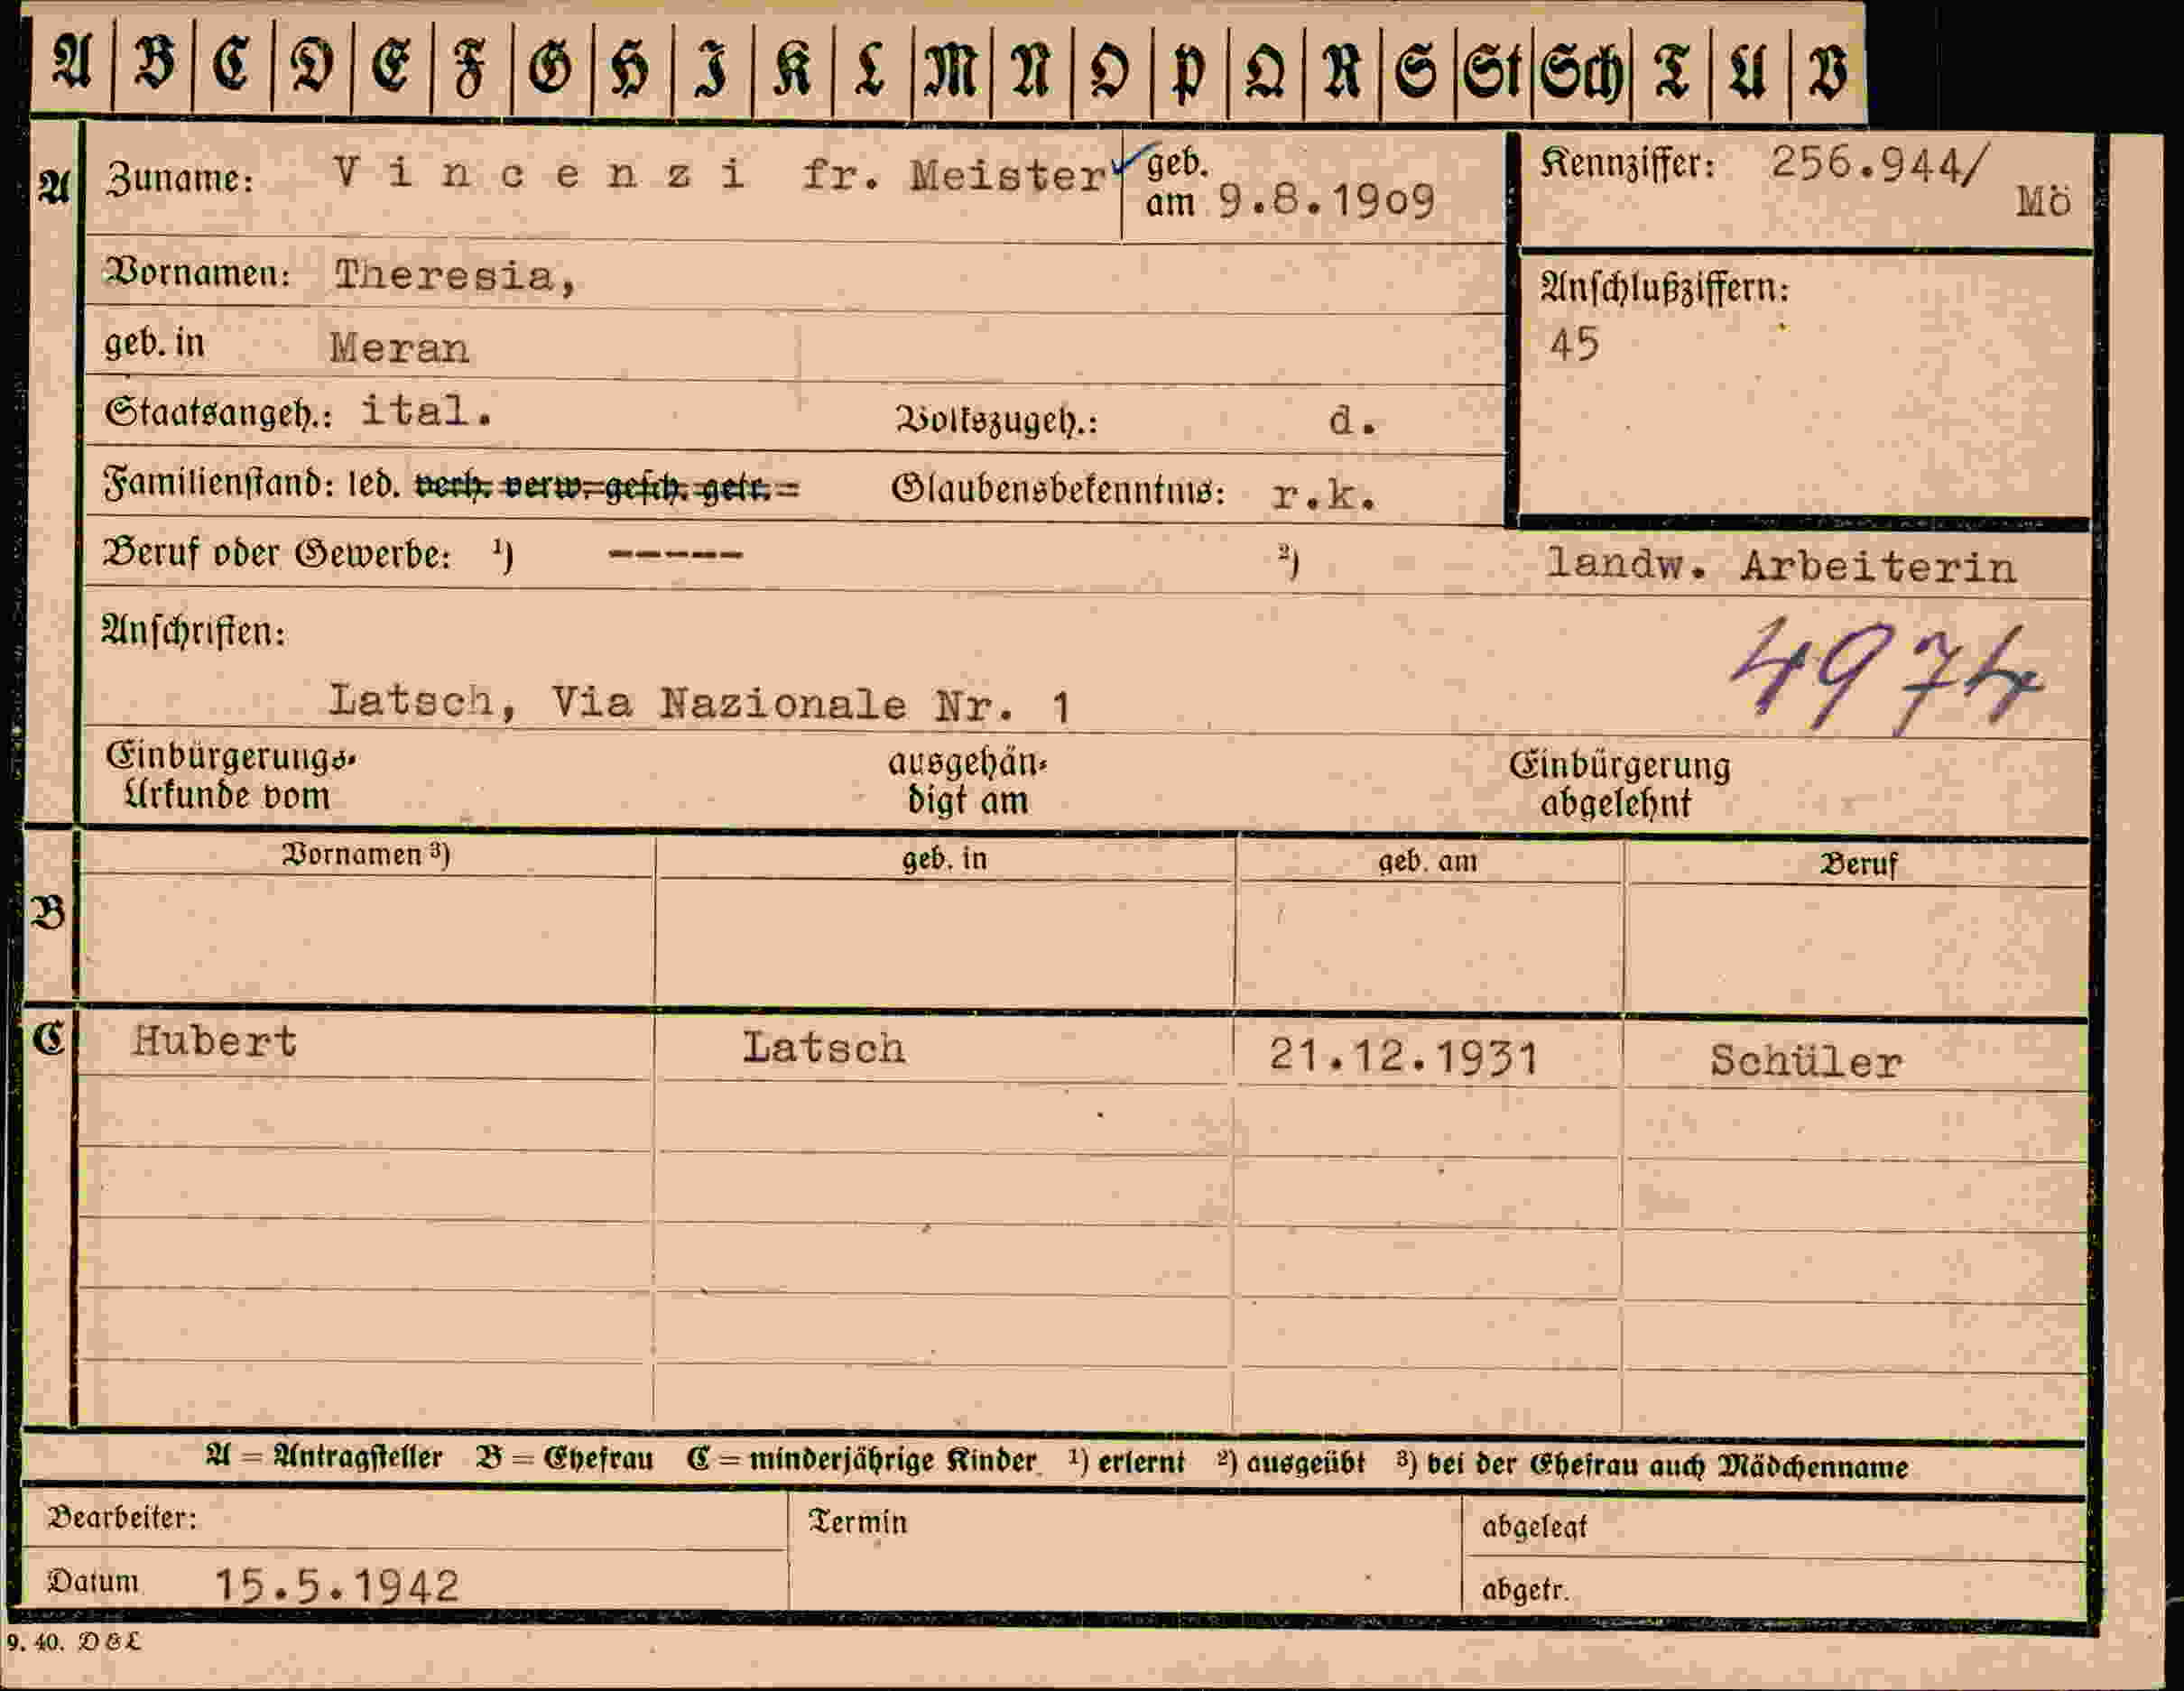 A B C D E F G H I K L M N O P Q R S St Sch T U V
A Zuname: Vincenzi fr. Meister geb. am 9.8.1909 Kennziffer: 256.944/ Mö
Vornamen: Theresia, Anschlußziffern:
geb. in Meran 45
Staatsangeh.: ital. Volkszugeh.: d.
Familienstand: led. verh. verw. gesch. getr. = Glaubensbekenntnis: r.k.
Beruf oder Gewerbe: ¹) ----- ²) landw. Arbeiterin
Anschriften: 4974
Latsch, Via Nazionale Nr. 1
Einbürgerungs- ausgehän- Einbürgerung
Urkunde vom digt am abgelehnt
Vornamen ³) geb. in geb. am Beruf
B
C Hubert Latsch 21.12.1931 Schüler
A = Antragsteller B = Ehefrau C = minderjährige Kinder ¹) erlernt ²) ausgeübt ³) bei der Ehefrau auch Mädchenname
Bearbeiter: Termin abgelegt
Datum 15.5.1942 abgetr.
9. 40. D&L